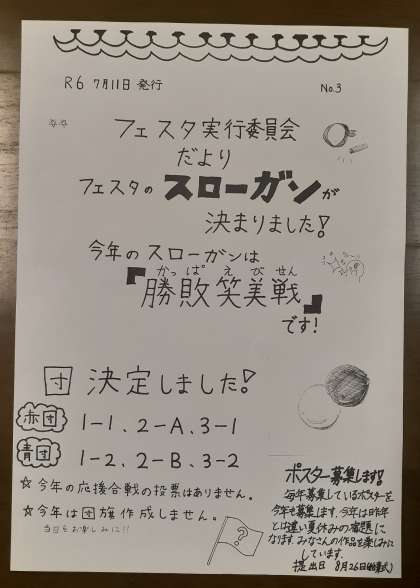 R6 7月11日 発行
No.3
フェスタ実行委員会
だより
フェスタの スローガンが
決まりました!
今年の スローガンは
かっぱ えびせん
『勝敗笑美戦』
です!
団 決定しました!
赤団 1-1、2-A、3-1
青団 1-2、2-B、3-2
☆今年の応援合戦の投票はありません。
☆今年は団旗作成しません。
当日をお楽しみに!!
?
ポスター募集します!
毎年募集しているポスターを
今年も募集します。今年は昨年
とは違い夏休みの宿題に
なります。みなさんの作品を楽しみに
しています。
提出日 8月26日(始業式)